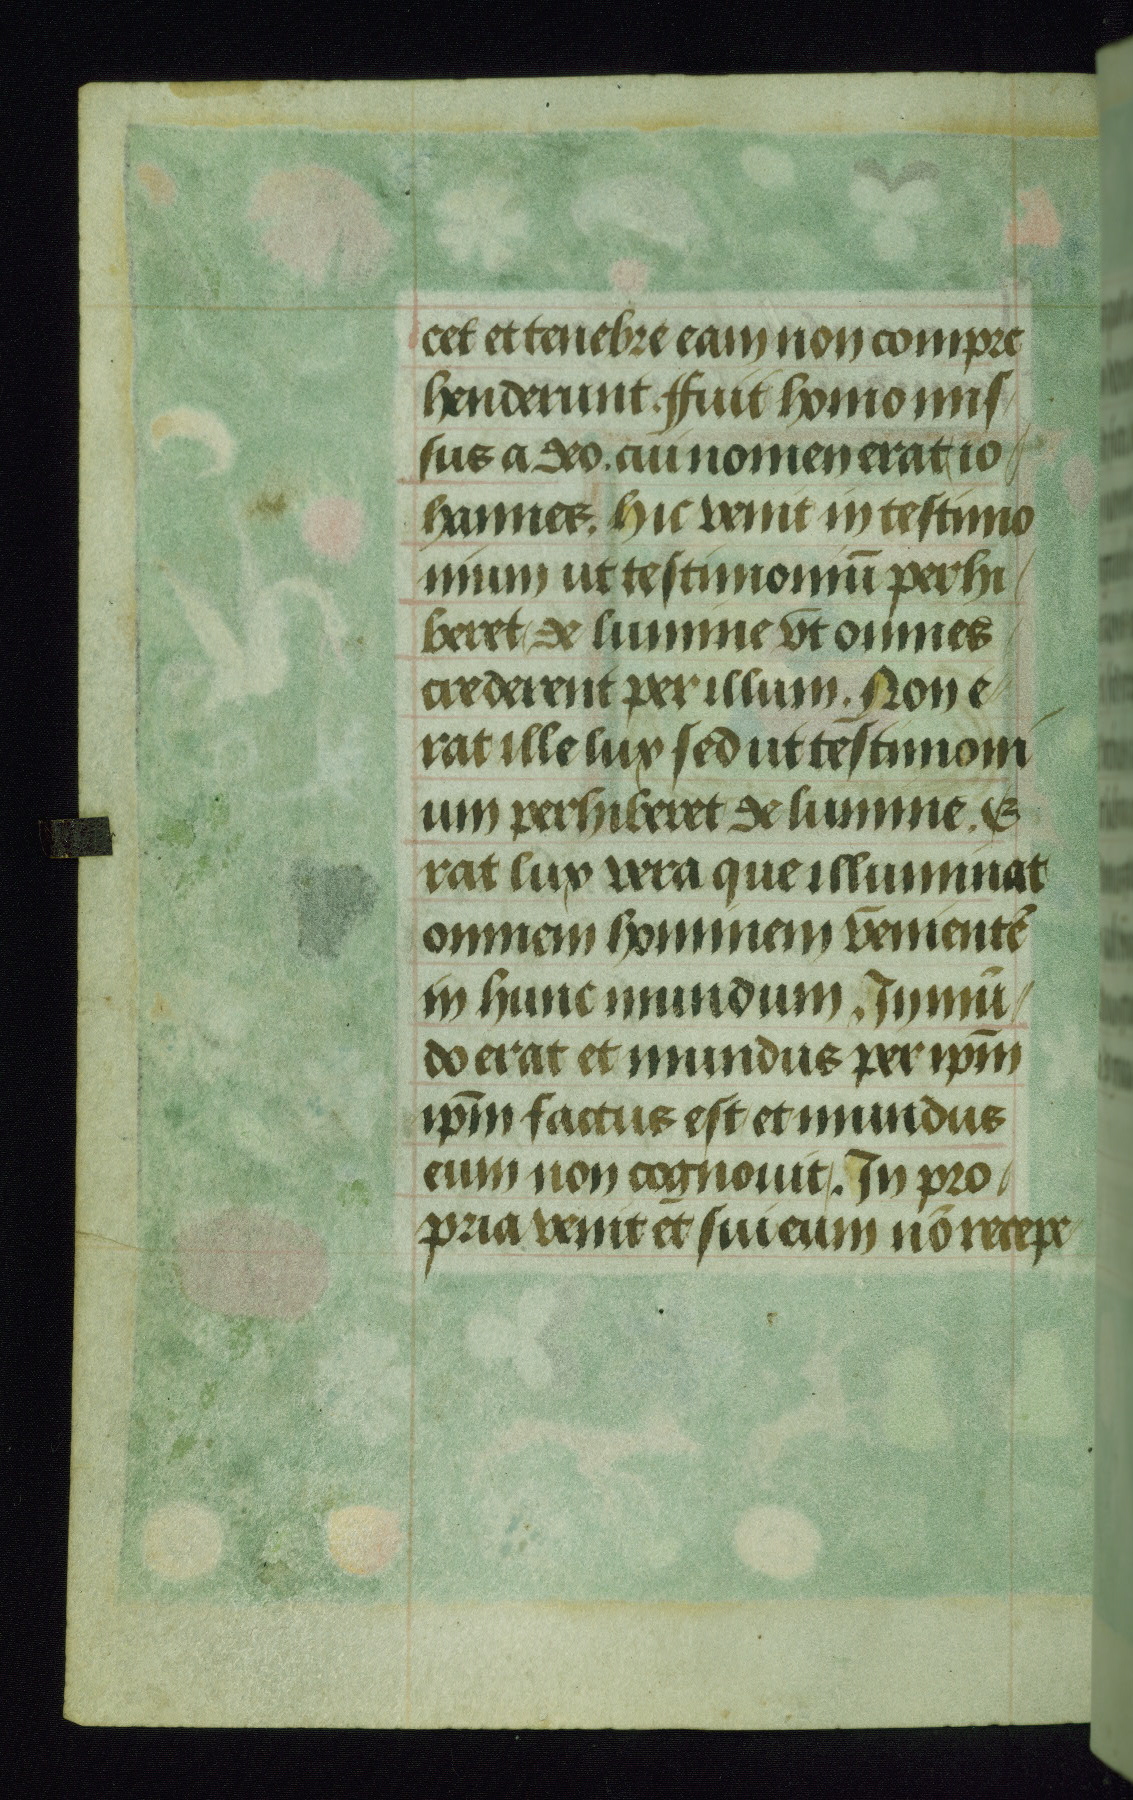 cet et tenebre eam non compre
henderunt. ffuit homo mis
sus a deo. cui nomen erat io
hannes. hic venit in testimo
nium ut testimoniū perhi
beret de lumine vt omnes
crederent per illum. Non e
rat ille lux sed ut testimoni
um perhiberet de lumine. E
rat lux vera que illuminat
omnem hominem venientē
in hunc mundum. In mū
do erat et mundus per ip̄m
ip̄m factus est et mundus
eum non cognouit. In pro
pria venit et sui eum nō recepe